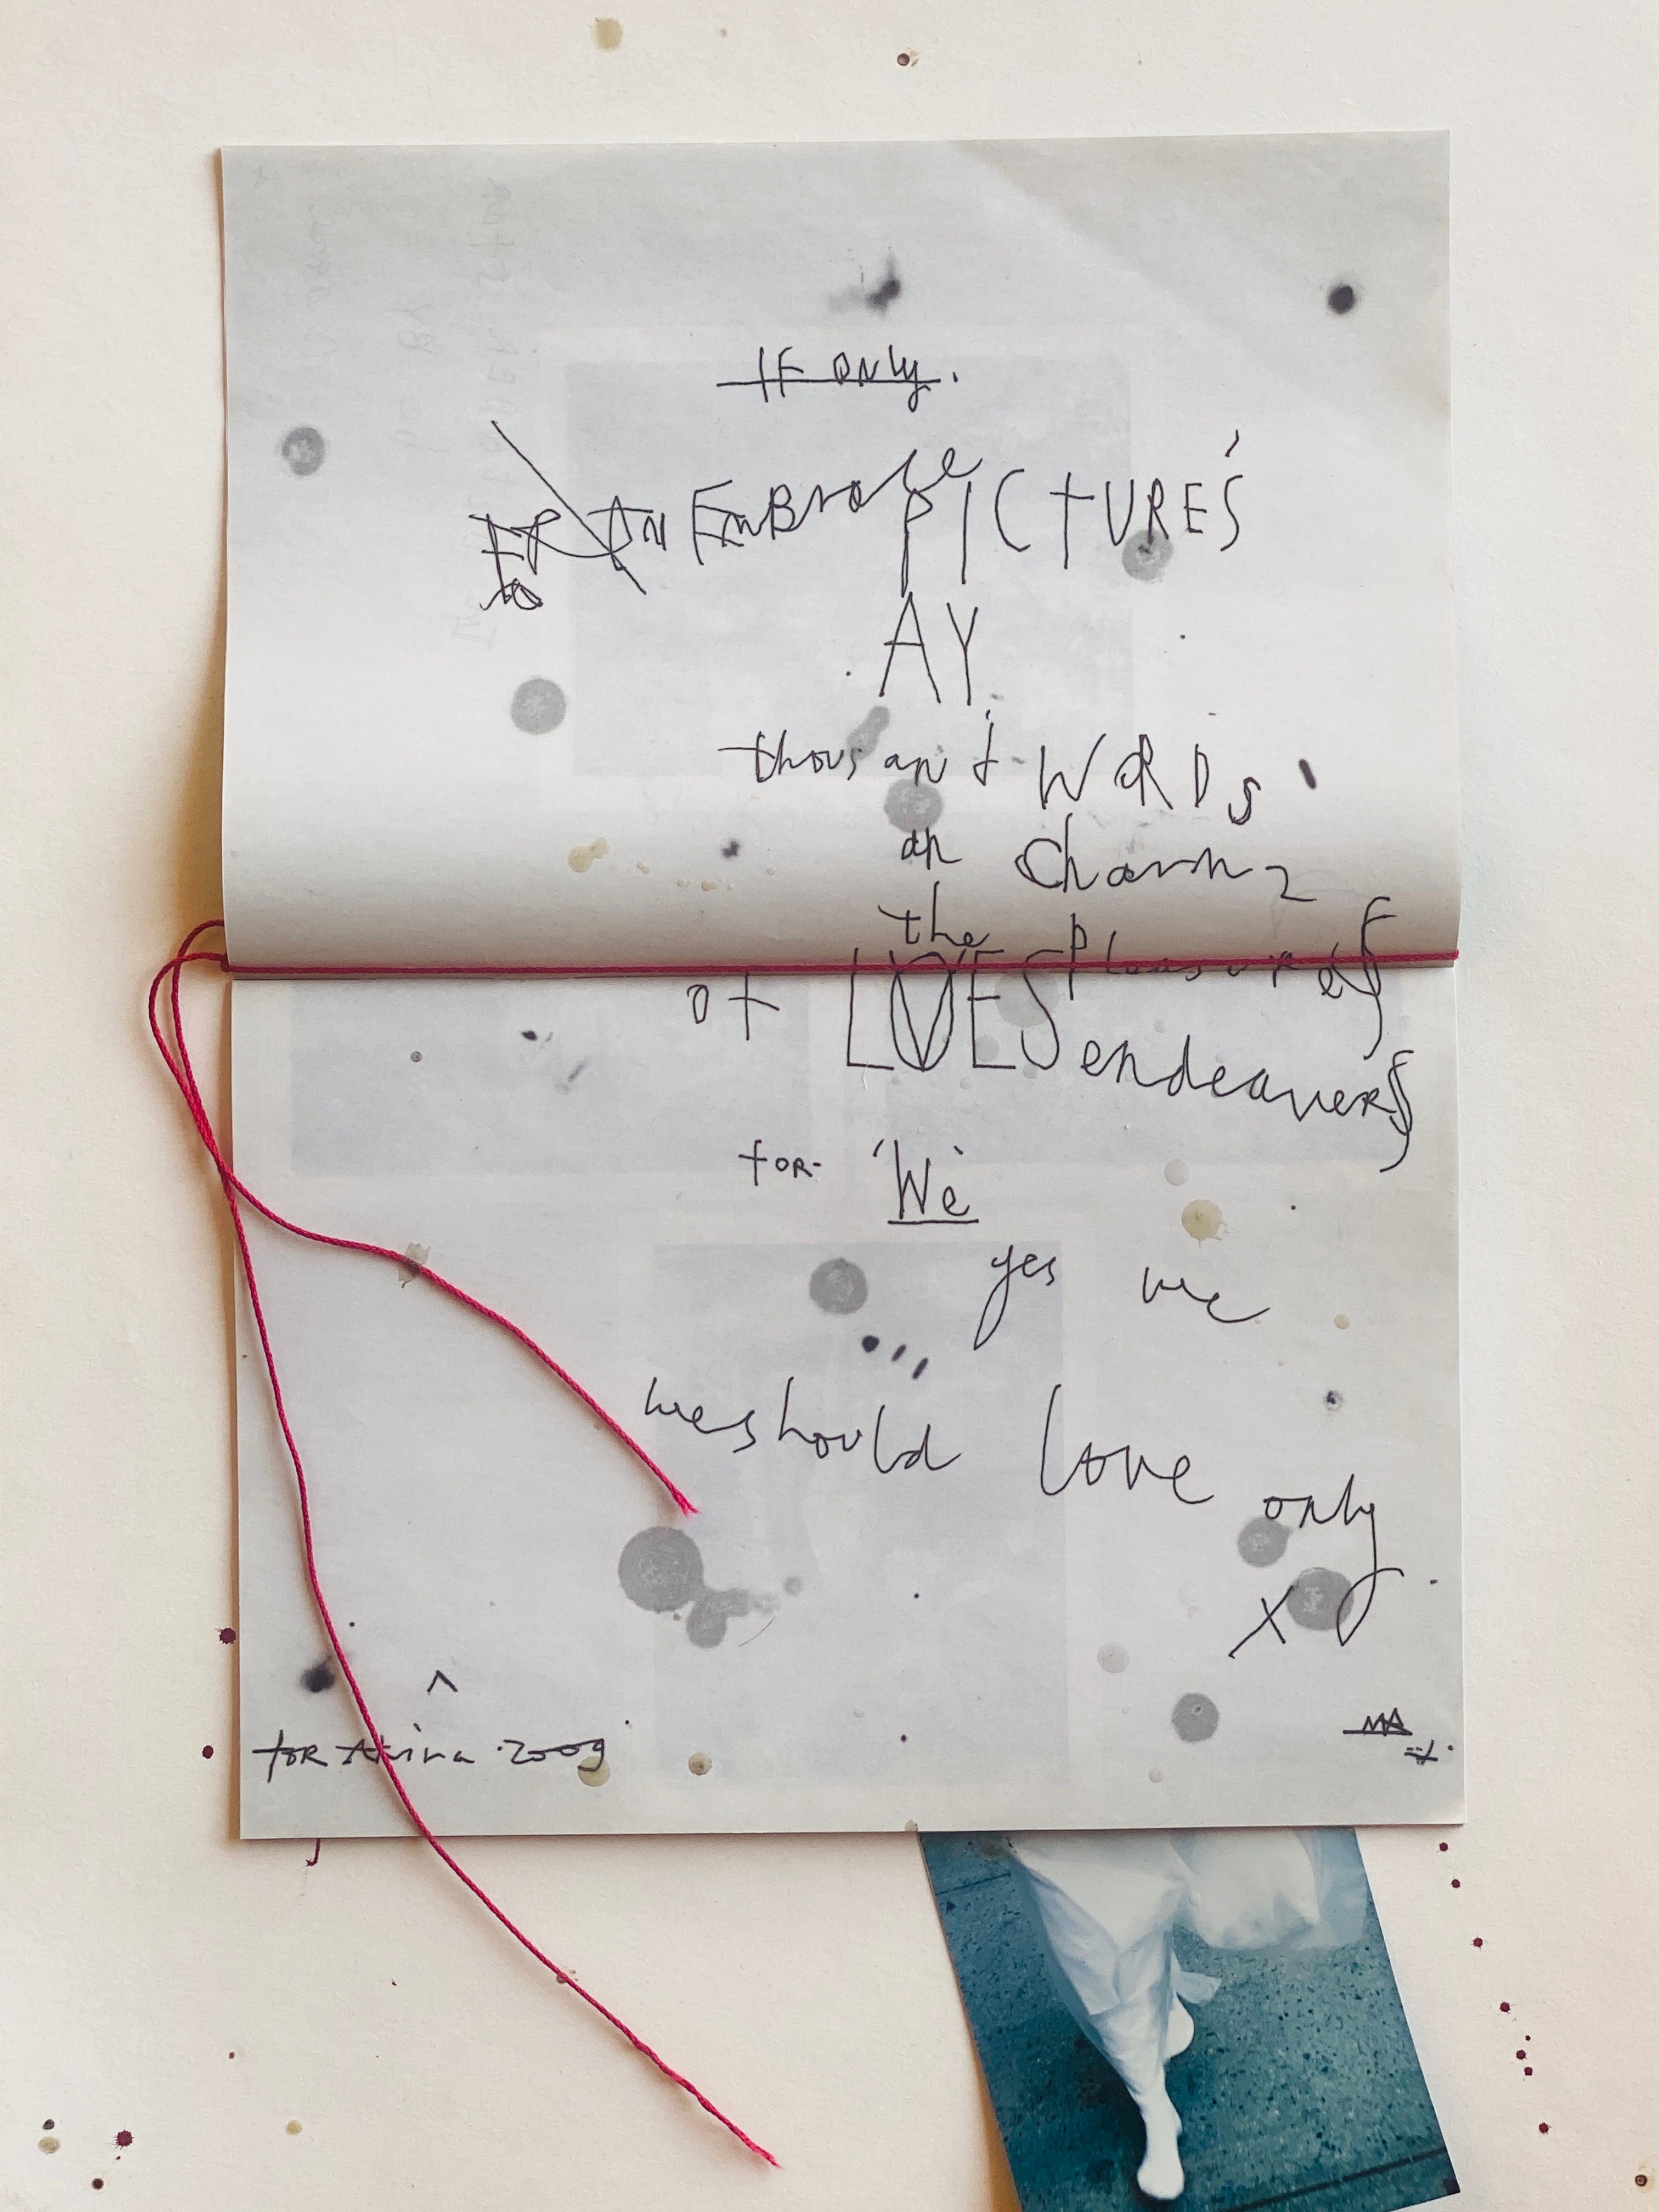 IF ONLY.
AN EMBrace PICTURE'S
AY
thousand WORDs
an Charm
the Pleasures
of LOVES endeavers
FOR 'We'
yes we
we should love only
x
FOR 2009
MA